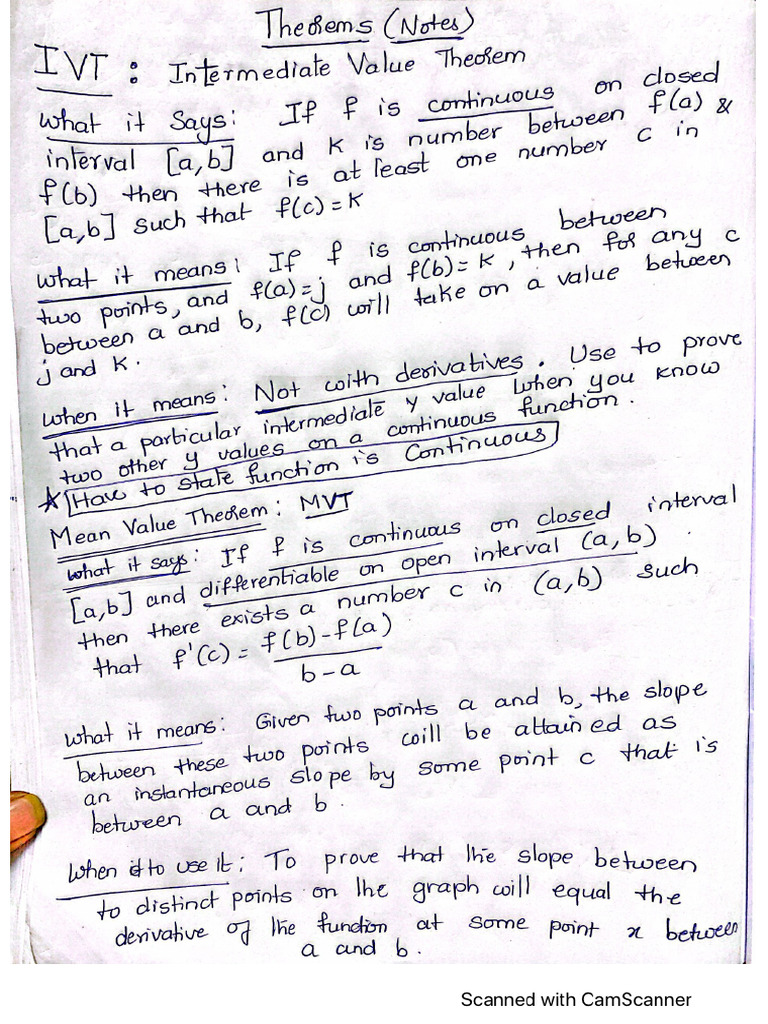 Theorems (Notes)
IVT : Intermediate Value Theorem
What it Says: If f is continuous on closed
interval [a,b] and K is number between f(a) &
f(b) then there is at least one number c in
[a,b] such that f(c)=K
What it means: If f is continuous between
two points, and f(a)=j and f(b)=K, then for any c
between a and b, f(c) will take on a value between
j and K.
When it means: Not with derivatives. Use to prove
that a particular intermediate y value when you know
two other y values on a continuous function.
★ Have to state function is Continuous
Mean Value Theorem: MVT
What it says: If f is continuous on closed interval
[a,b] and differentiable on open interval (a,b).
then there exists a number c in (a,b) such
that f'(c) = f(b)-f(a)
b-a
What it means: Given two points a and b, the slope
between these two points will be attained as
an instantaneous slope by some point c that is
between a and b.
When to use it: To prove that the slope between
to distinct points on the graph will equal the
derivative of the function at some point x between
a and b.
Scanned with CamScanner